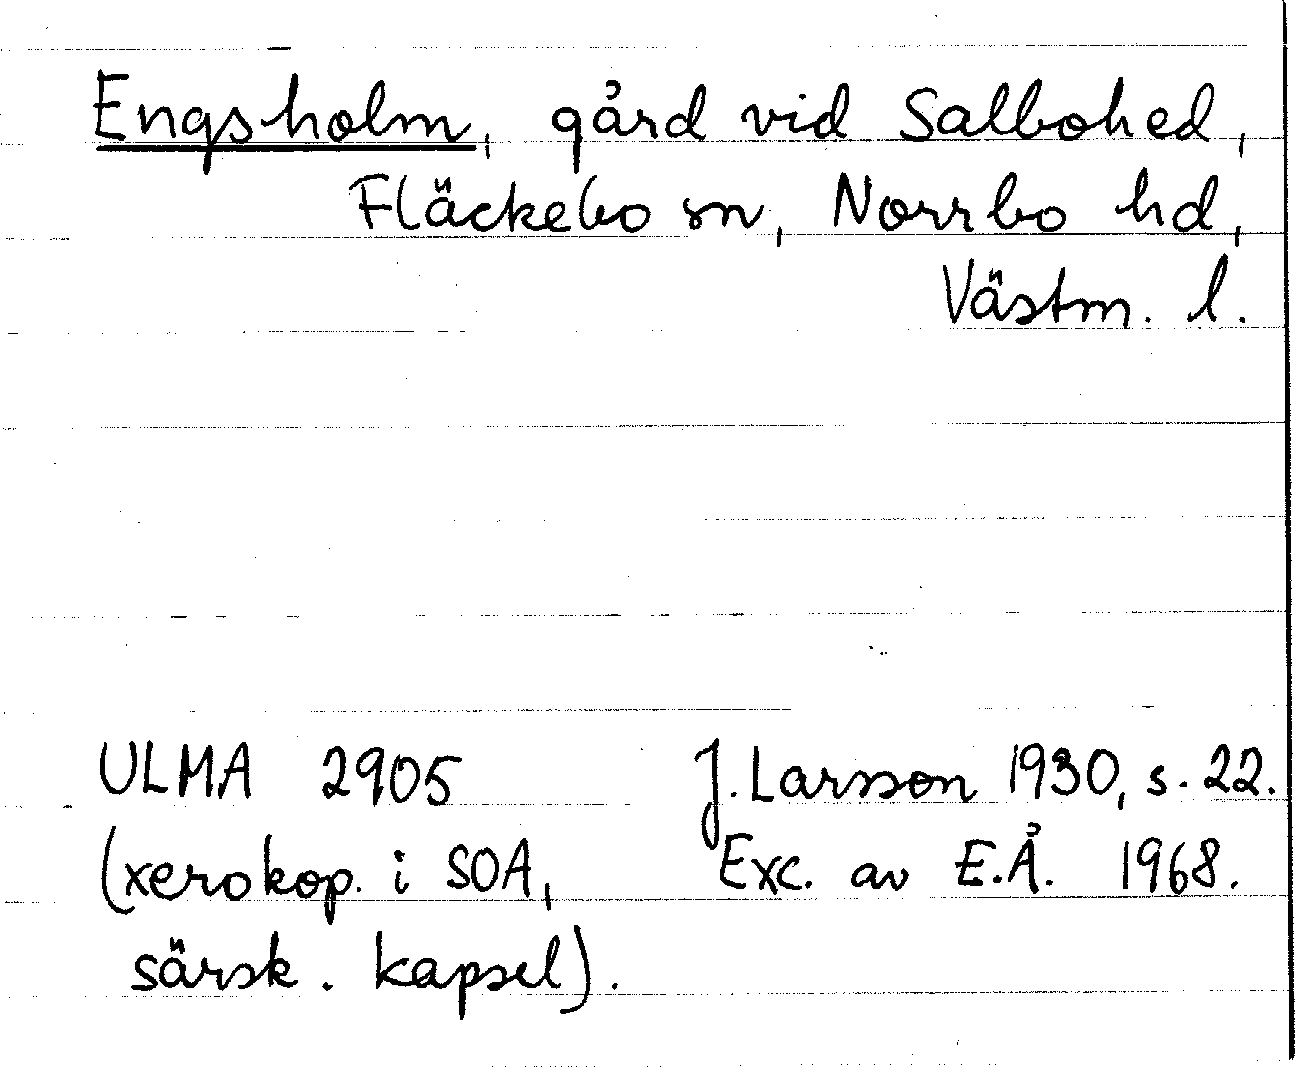 Engsholm, gård vid Salbohed,
Fläckebo sn, Norrbo hd,
Västm. l.
ULMA 2905 J. Larsson 1930, s. 22.
(xerokop. i SOA, Exc. av E.Å. 1968.
särsk. kapsel).